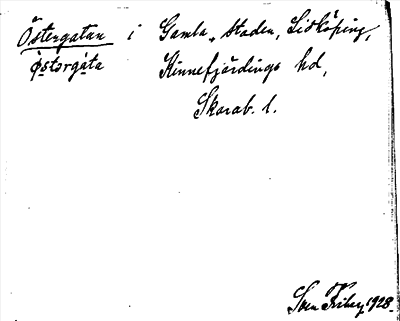 Östergatan i Gamla staden, Lidköping,
östərgáta Kinnefjärdings hd,
Skarab. l.
Sven 1928.